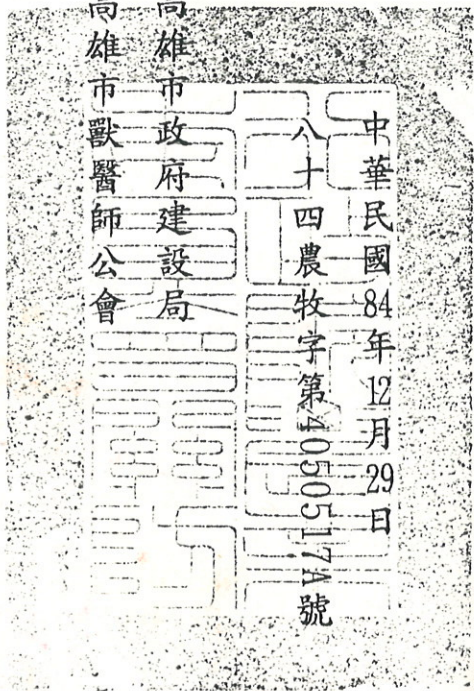 中華民國84年12月29日
八十四農牧字第4050517A號
高雄市政府建設局
高雄市獸醫師公會